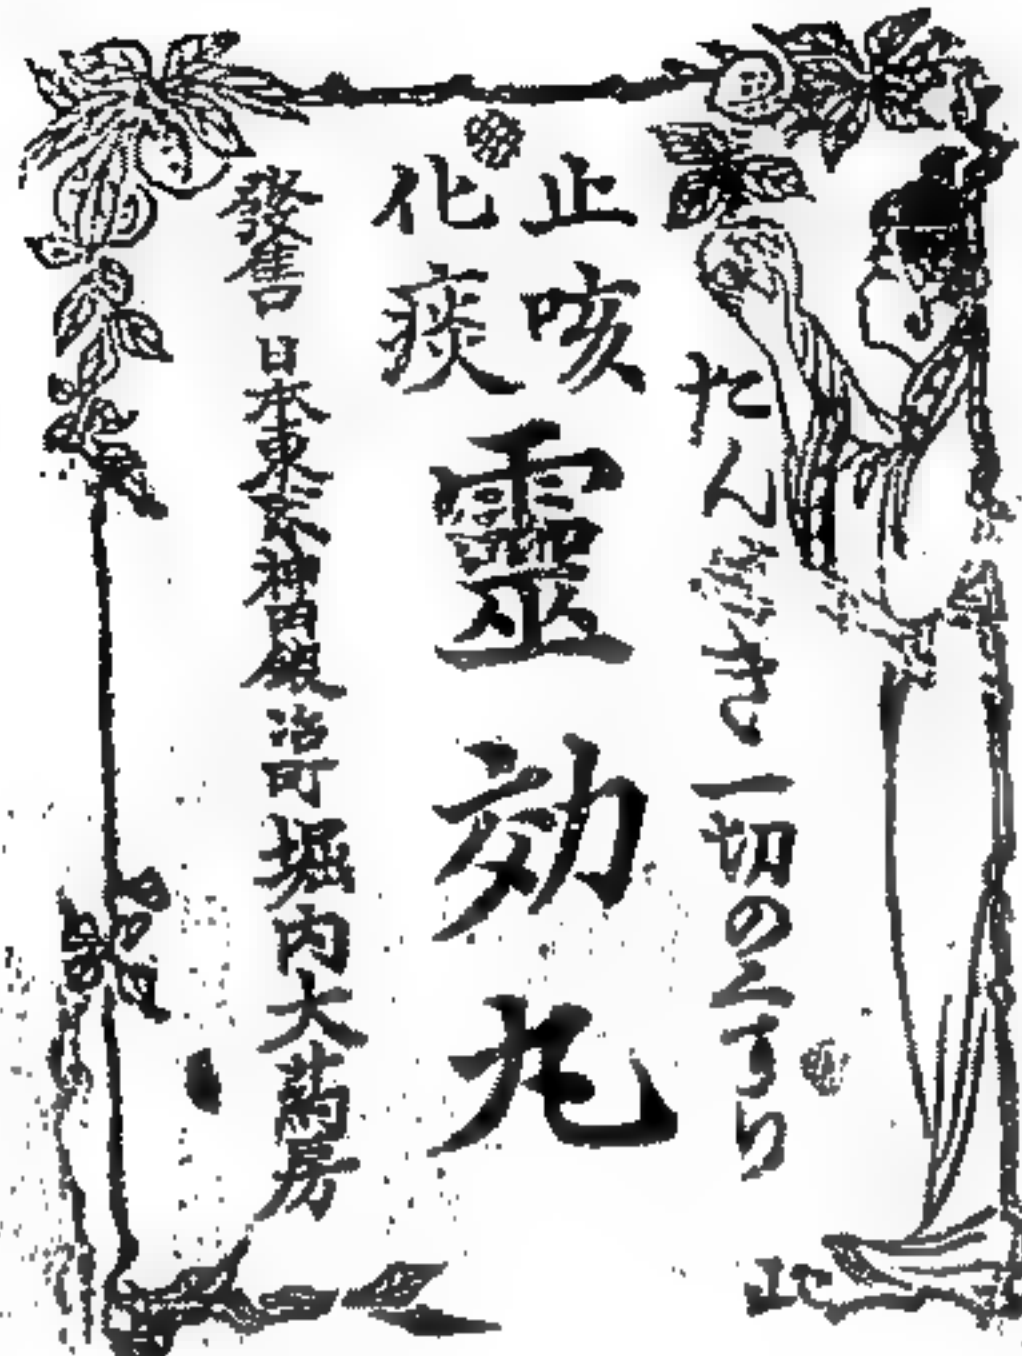 たんせき一切のくすり
止咳
化痰
靈効丸
發售 日本東京神田鍛冶町堀内大藥房